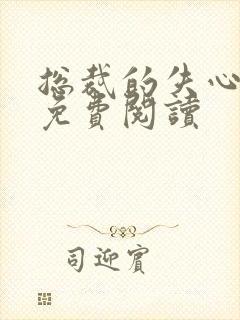 总裁的失心
免費閱讀
司迎賓